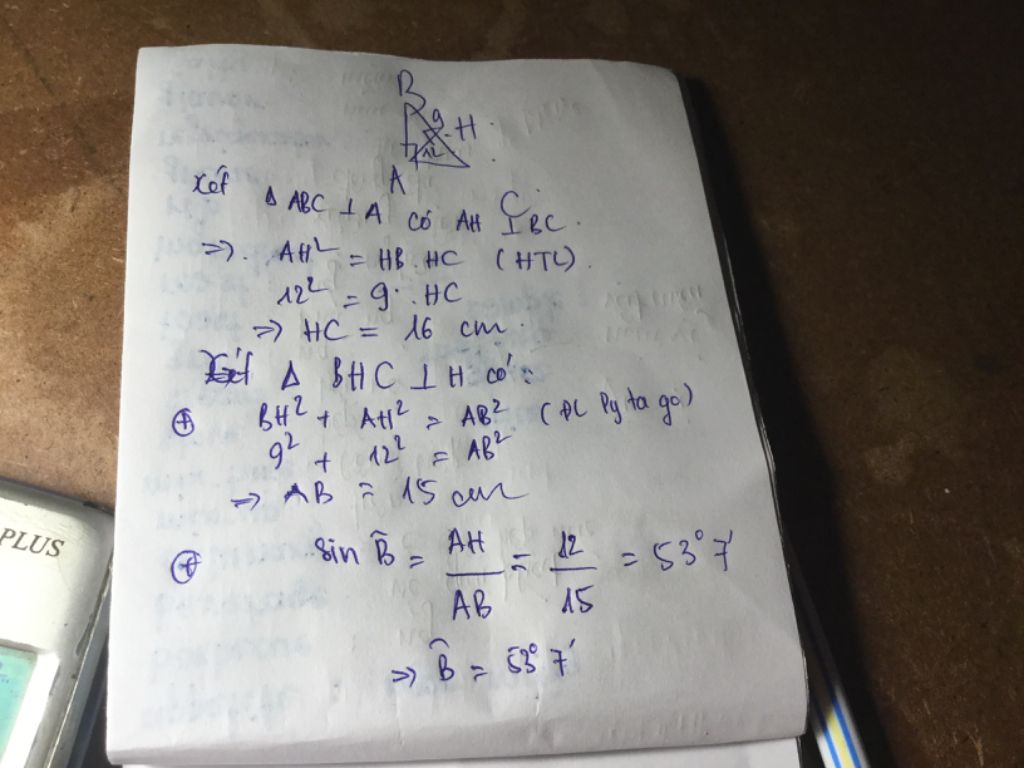 B
9
H
12
A
C
Xét Δ ABC ⊥ A có AH ⊥ BC.
=> AH² = HB . HC (HTL).
12² = 9 . HC
=> HC = 16 cm
Xét Δ BHC ⊥ H có:
⊕ BH² + AH² = AB² (ĐL Py ta go)
9² + 12² = AB²
=> AB = 15 cm
⊕ Sin B̂ = AH/AB = 12/15 = 53° 7'
=> B̂ = 53° 7'
PLUS